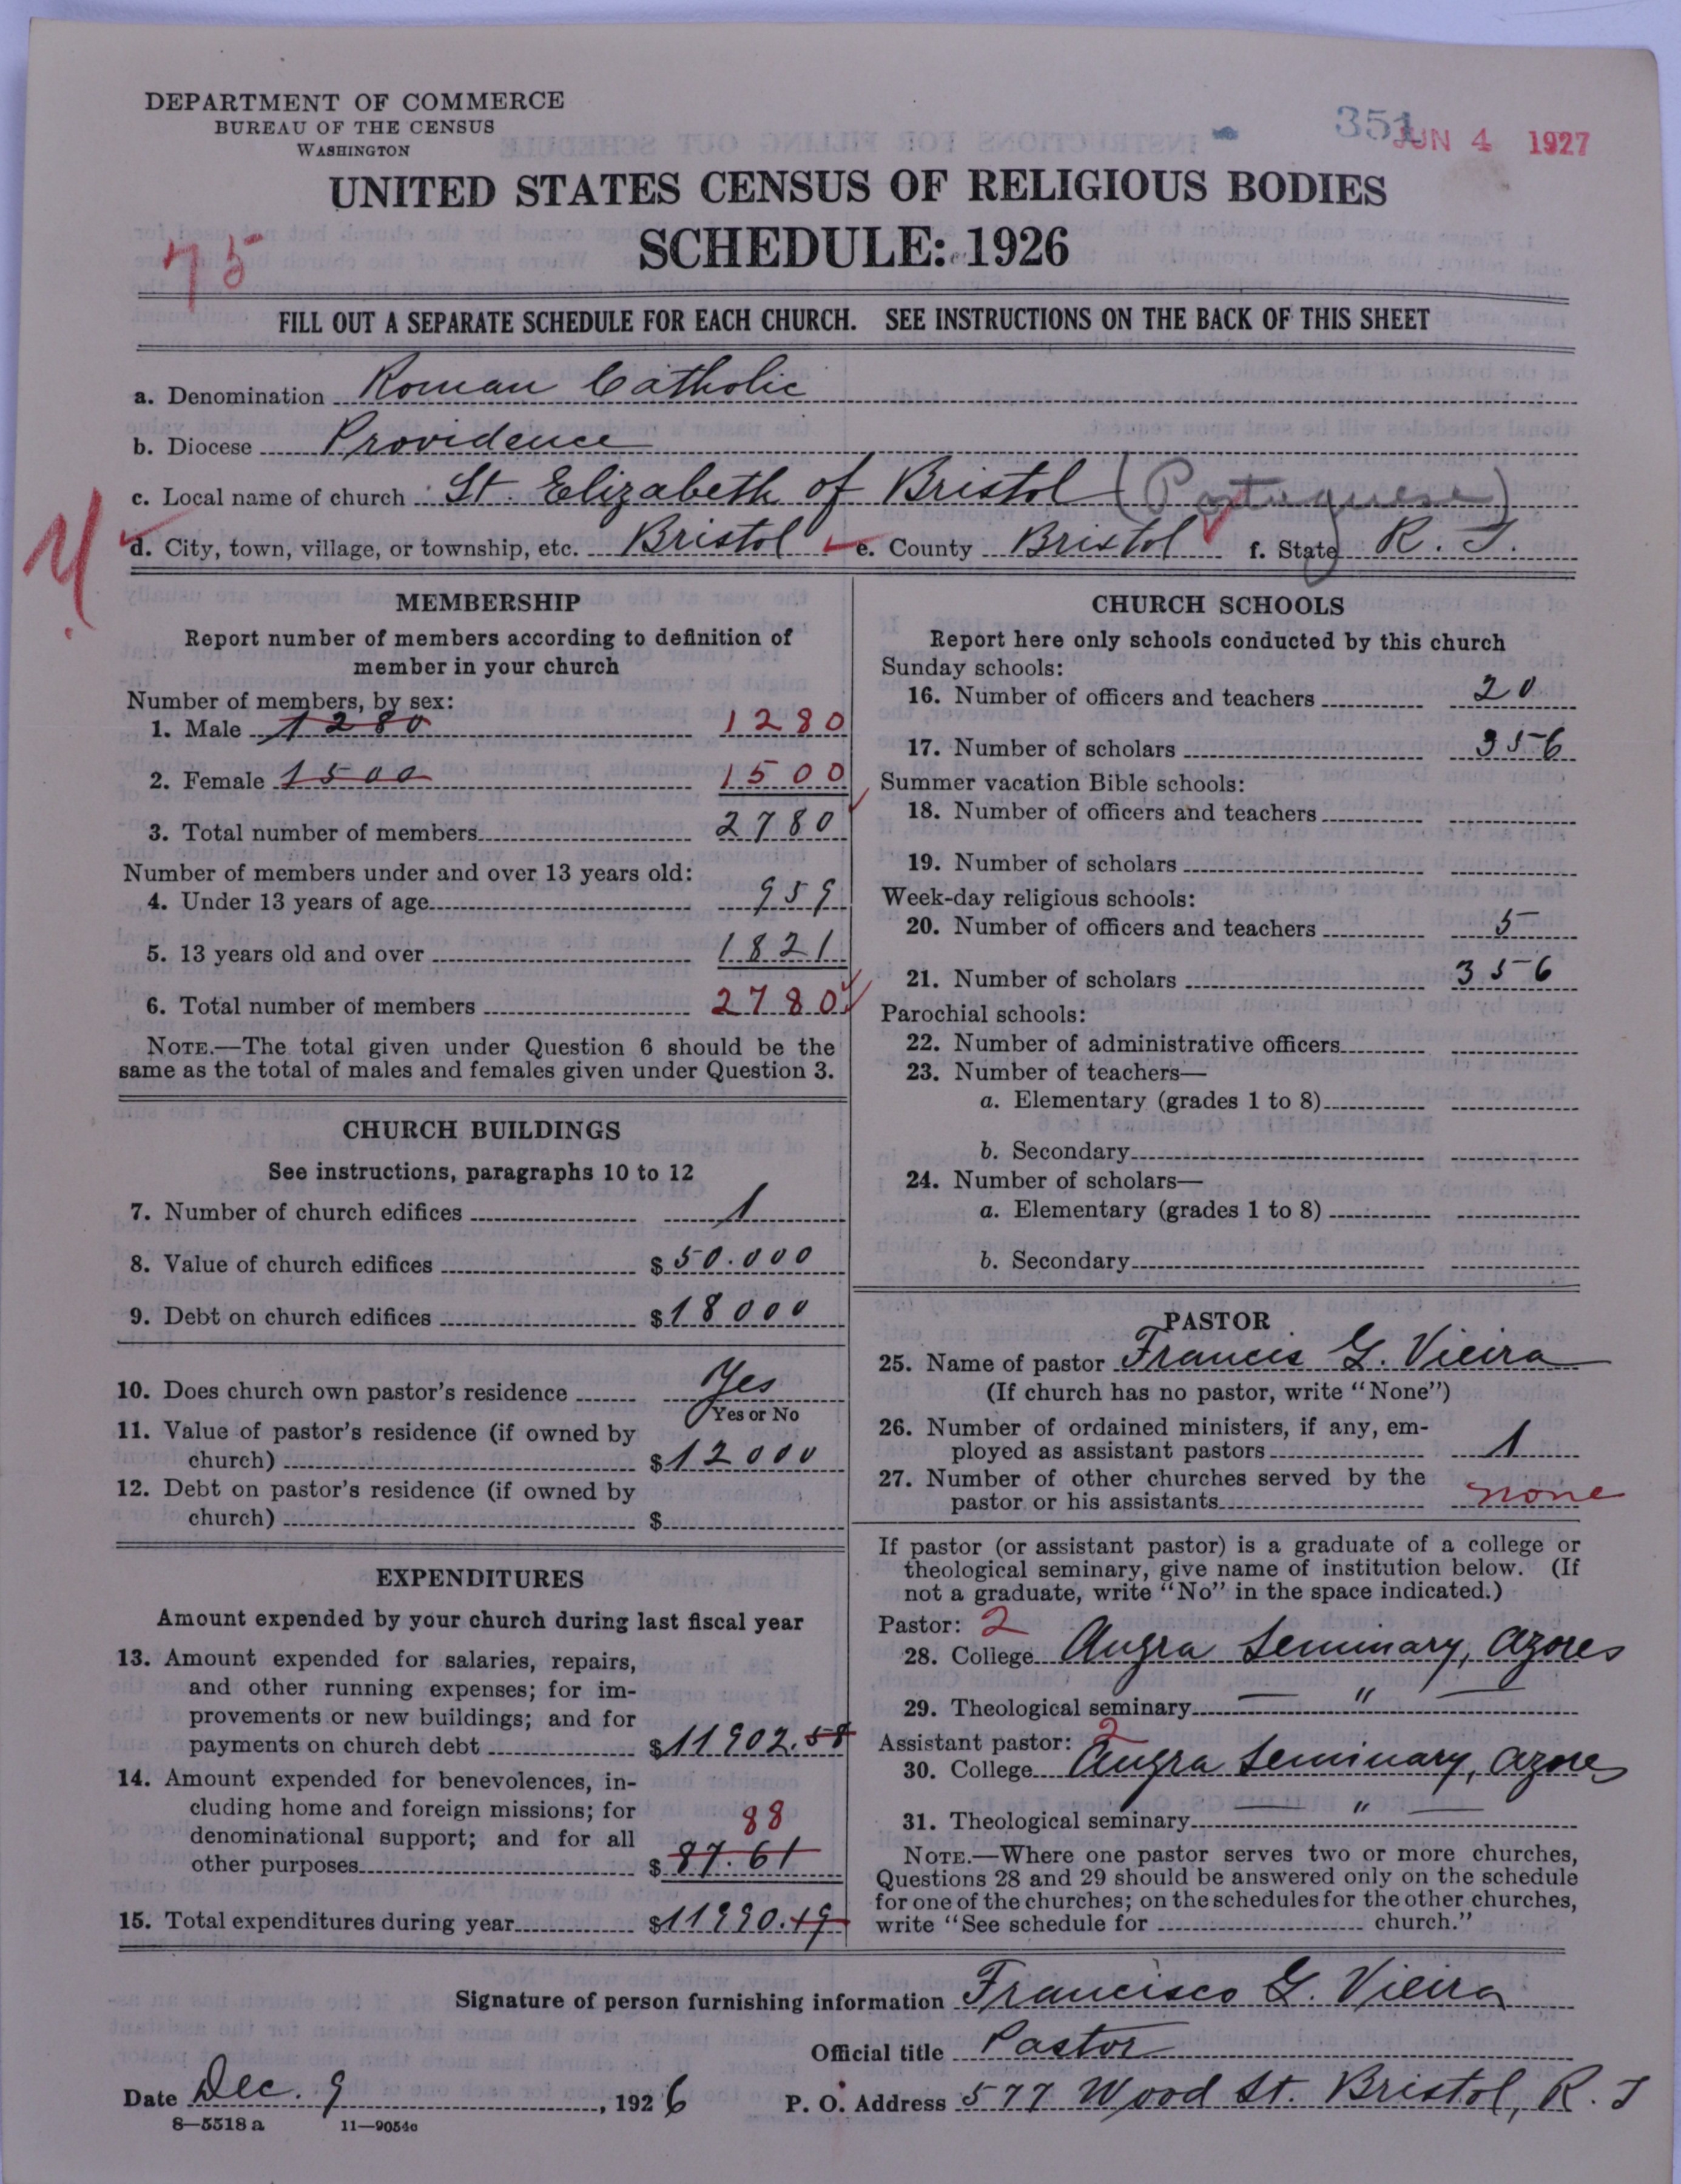 DEPARTMENT OF COMMERCE
BUREAU OF THE CENSUS
WASHINGTON
351
JUN 4 1927
UNITED STATES CENSUS OF RELIGIOUS BODIES
SCHEDULE: 1926
75
FILL OUT A SEPARATE SCHEDULE FOR EACH CHURCH. SEE INSTRUCTIONS ON THE BACK OF THIS SHEET
a. Denomination Roman Catholic
b. Diocese Providence
c. Local name of church St. Elizabeth of Bristol (Portuguese)
d. City, town, village, or township, etc. Bristol e. County Bristol f. State R. I.
MEMBERSHIP
Report number of members according to definition of
member in your church
Number of members, by sex:
1. Male 1280 1280
2. Female 1500 1500
3. Total number of members 2780
Number of members under and over 13 years old:
4. Under 13 years of age 959
5. 13 years old and over 1821
6. Total number of members 2780
NOTE.—The total given under Question 6 should be the
same as the total of males and females given under Question 3.
CHURCH BUILDINGS
See instructions, paragraphs 10 to 12
7. Number of church edifices 1
8. Value of church edifices $50.000
9. Debt on church edifices $18000
10. Does church own pastor's residence Yes
Yes or No
11. Value of pastor's residence (if owned by
church) $12000
12. Debt on pastor's residence (if owned by
church) $
EXPENDITURES
Amount expended by your church during last fiscal year
13. Amount expended for salaries, repairs,
and other running expenses; for im-
provements or new buildings; and for
payments on church debt $11902.58
14. Amount expended for benevolences, in-
cluding home and foreign missions; for
denominational support; and for all 88
other purposes $87.61
15. Total expenditures during year $11990.19
CHURCH SCHOOLS
Report here only schools conducted by this church
Sunday schools:
16. Number of officers and teachers 20
17. Number of scholars 356
Summer vacation Bible schools:
18. Number of officers and teachers
19. Number of scholars
Week-day religious schools:
20. Number of officers and teachers 5
21. Number of scholars 356
Parochial schools:
22. Number of administrative officers
23. Number of teachers—
a. Elementary (grades 1 to 8)
b. Secondary
24. Number of scholars—
a. Elementary (grades 1 to 8)
b. Secondary
PASTOR
25. Name of pastor Francis G. Vieira
(If church has no pastor, write "None")
26. Number of ordained ministers, if any, em-
ployed as assistant pastors 1
27. Number of other churches served by the
pastor or his assistants none
If pastor (or assistant pastor) is a graduate of a college or
theological seminary, give name of institution below. (If
not a graduate, write "No" in the space indicated.)
Pastor: 2
28. College Angra Seminary, Azores
29. Theological seminary — " —
Assistant pastor: 2
30. College Angra Seminary, Azores
31. Theological seminary — " —
NOTE.—Where one pastor serves two or more churches,
Questions 28 and 29 should be answered only on the schedule
for one of the churches; on the schedules for the other churches,
write "See schedule for church."
Signature of person furnishing information Francisco G. Vieira
Official title Pastor
Date Dec. 9, 1926 P. O. Address 577 Wood St. Bristol, R. I
8—5518 a 11—9054c